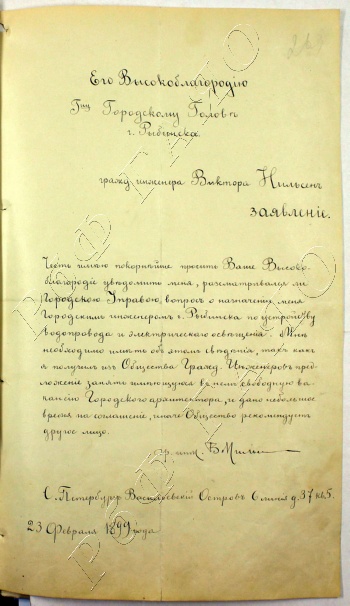 Его Высокоблагородію
Гну Городскому Головѣ
г. Рыбинска
гражд. инженера Виктора Нильсенъ
заявленіе.
Честь имѣю покорнѣйше просить Ваше Высоко-
благородіе увѣдомить меня, разсматривался ли
Городскою Управою, вопросъ о назначеніи меня
Городскимъ инженеромъ г. Рыбинска по устройству
водопровода и электрическаго освѣщенія. Мнѣ
необходимо имѣть объ этомъ свѣдѣнія, такъ какъ
я получилъ изъ Общества Гражд. Инженеровъ пред-
ложеніе занять имѣющуюся въ свободную ва-
кансію Городского архитектора, и дано небольшое
время на соглашеніе, иначе Общество рекомендуетъ
другое лицо.
гр. инж.
С. Петербургъ Васильевскій Островъ 6 линія д. 37 кв 5.
23 Февраля 1899 года